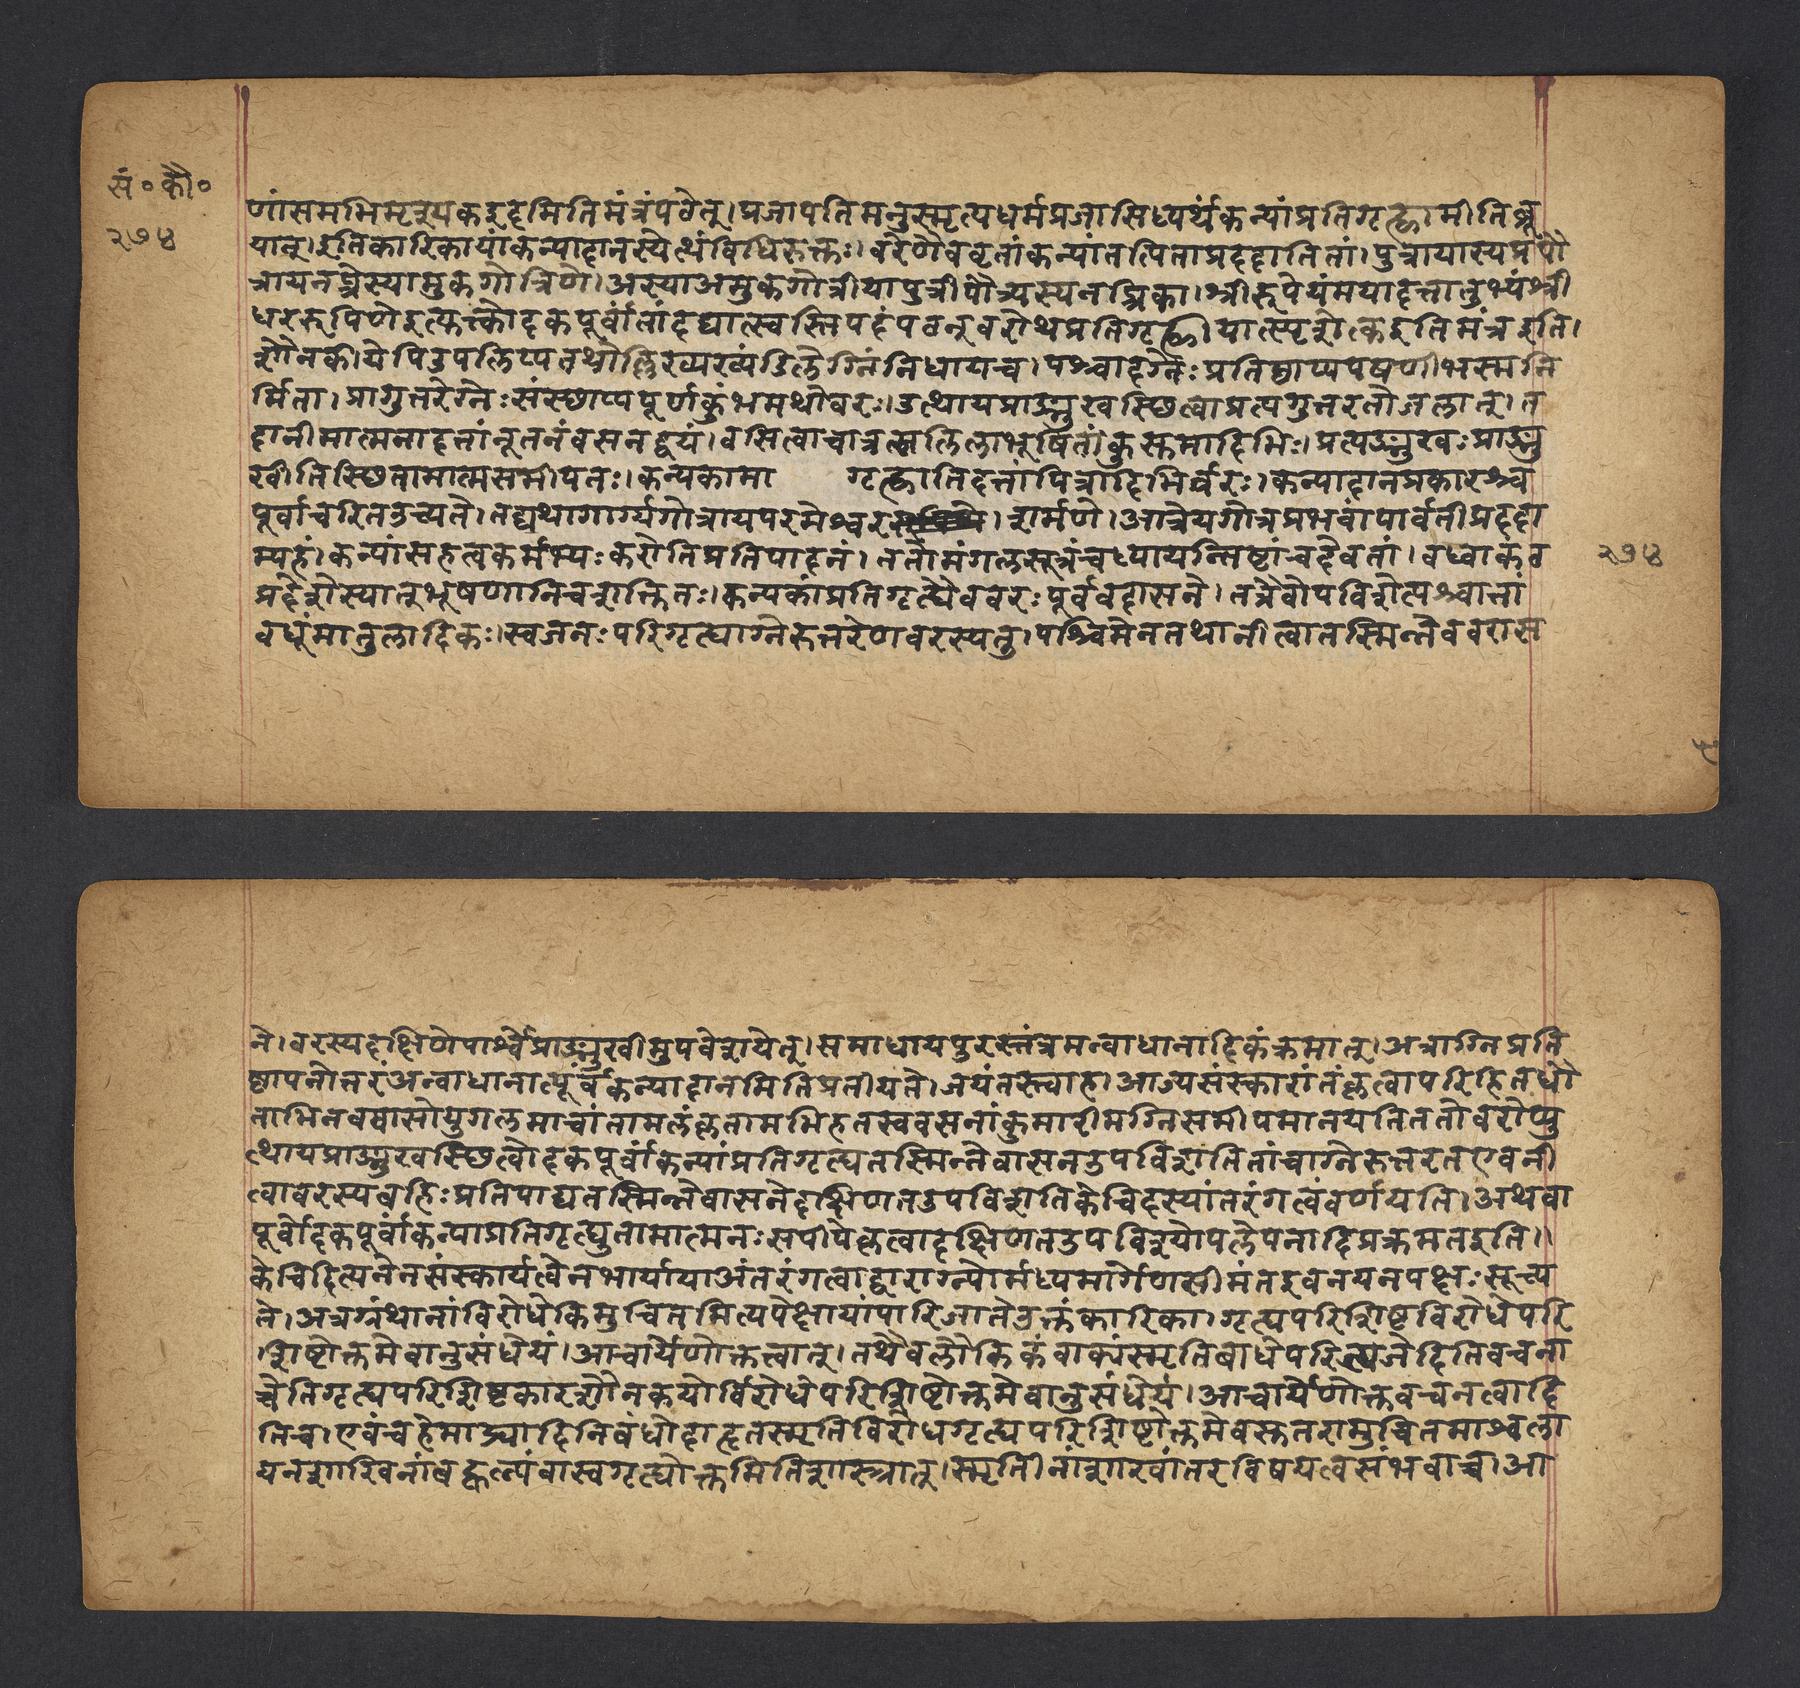 सं॰ कौ॰
२७४
णांसमभिमृत्रूयकइदमितिमंत्रंपठेत्।प्रजापतिमनुस्मृत्यधर्मप्रजासिध्यर्थंकन्यांप्रतिगृत्ह्णामीतिब्रू
यात्।इतिकारिकायांकन्यादानस्येत्थंविधिरुक्तः।वरेणैववृतांकन्यांतत्पिताप्रददातितां।पुत्रायास्यप्रपौ
त्रायनप्त्रेस्यामुकगोत्रिणे।अस्याअमुकगोत्रीयापुत्रीपौत्र्यस्यनप्त्रिका।श्रीरूपेयंमयादत्तातुभ्यंश्री
धररूपिणेइत्युक्त्कोदकपूर्वांतांदद्यात्स्वस्ति
शौनकी।येपिउपलिप्यतथोल्लिख्यस्थंडिलेग्निंनिधायच।पश्चादग्नेःप्रतिष्ठाप्यदृषणीभस्मनि
र्मिता।प्रागुत्तरेग्नेःसंस्छाप्यपूर्णकुंभमथोवरः।उत्थायप्राङ्मुखस्छित्वाप्रत्यगुत्तरतोजलात्।त
दानीमात्मनादत्तांनूतनंवसनद्वयं।वसित्वाचात्र भूषितांकुस्तमादिभिः।प्रत्यङ्मुखःप्राङ्मु
खीतिस्छितामात्मसमीपतः।कन्यकामा गृत्ह्णातिदत्तांपित्रादिभिर्वरः।कन्यादानप्रकारश्च
पूर्वाचरितउच्यते।तद्यथागार्ग्यगोत्रायपरमेश्वर शर्मणे।आत्रेयगोत्रप्रभवांपार्वतींप्रददा
म्यहं।कन्यांसहत्वकर्मभ्यःकरोतिप्रतिपादनं।ततोमंगलसूत्रंचध्यायन्निष्टांचदैवतां।वध्वाकंठ
प्रदेशेस्यातुभूषणानिचशक्तितः।कन्यकांप्रतिगृत्ह्यैववरःपूर्ववदासने।तत्रैवोपविशेत्पश्चात्तां
वधूंमातुलादिकः।स्वजनःपरिगृत्ह्याग्नेरुत्तरेणवरस्यतु।पश्चिमेनतथानीत्वातस्मिन्नेववरास
२७४
ने।वरस्यदक्षिणेपार्श्वेप्राङ्मुखीमुपवेशयेत्।समाधायपुरस्तंत्रमन्वाधानादिकंक्रमात्।अत्राग्निप्रति
ष्ठापनोत्तरंअन्वाधानात्पूर्वंकन्यादानमितिप्रतीयते।जयंतस्त्वाह।आज्यसंस्कारांतंकृत्वापरिहितधौ
ताभिनवषासोयुगलमाचांतामलंकृतामभिहतस्ववसनांकुमारीमग्निसमीपमानयतिततोवरोप्यु
थोयप्राङ्मुखस्छित्वोदकपूर्वांकन्यांप्रतिगृत्ह्यतस्मिन्नेवासनउपविशतितांचाग्नेरुत्तरतएवनी
त्वावरस्यबहिःप्रतिपाद्यतस्मिन्नेवासनेदक्षिणतउपविशतिकेचिदस्यांतरंगत्वंवर्णयति।अथवा
पूर्वोदकपूर्वांकन्यांप्रतिगृत्ह्युतामात्मनःसपीपेकृत्वादक्षिणतउपविश्योपलेपनादिप्रक्रमतइति।।
केचिदित्यनेनसंस्कार्यत्वेनभार्यायाअंतरंगत्वाद्वाराग्न्योर्मध्यमार्गेणसीमंतइवनयनपक्षःसूच्य
ते।अत्रग्रंथानांविरोधेकिमुचितमित्यपेक्षायांपारिजातेउक्तंकारिका।गृत्ह्यपरिशिष्टविरोधेपरि
शिष्टोक्तमेवानुसंधेयं।आचार्येणोक्तत्वात्।तथैवलौकिकंवाक्यंस्मृतिबाधेपरित्यजेदितिवचना
च्चेतिगृत्ह्यपरिशिष्टकारशौनकयोर्विरोधेपरिशिष्टोक्तमेवानुसंधेयं।आचार्येणोक्तवचनत्वादि
तिच।एवंचहेमाद्र्यादिनिबंधोदाहृतस्मृतिविरोधगृत्ह्यपरिशिष्टोक्तमेवस्तुतरामुचितमाश्वला
यनशाखिनांबह्वल्पंवास्वगृत्ह्योक्तमितिशास्त्रात्।स्मृतीनांशाखांतरविषयत्वसंभवाच्च।आ